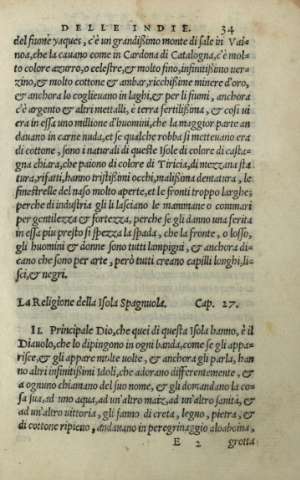 DELLE INDIE. 34
del fiume yaques, c'è un grandißimo monte di sale in Vai-
noa, che la cauano come in Cardona di Catalogna, c'è mol-
to colore azurro, o celestre, & molto fino, infinitißimo uer-
zino, & molto cottone & ambar, ricchißime minere d'oro,
& anchora lo coglieuano in laghi, & per li fiumi, anchora
c'è argento & altri metalli, è terra fertilißima, & così ui
era in essa uno millione d'huomini, che la maggior parte an
dauano in carne nuda, et se qualche robba si metteuano era
di cottone, sono i naturali di queste Isole di colore di casta-
gna chiara, che paiono di colore di Tiricia, di mezzana sta
tura, rifatti, hanno tristißimi occhi, malißima dentatura, le
finestrelle del naso molto aperte, et le fronti troppo larghe,
perche di industria gli li lasciano le mammane o commari
per gentilezza & fortezza, perche se gli danno una ferita
in essa piu presto si spezza la spada, che la fronte, o l'osso,
gli huomini & donne sono tutti lampigni, & anchora di-
cano che sono per arte, però tutti creano capilli longhi, li-
sci, & negri.
La Religione della Isola Spagnuola. Cap. 27.
IL Principale Dio, che quei di questa Isola hanno, è il
Diauolo, che lo dipingono in ogni banda, come se gli appa-
risce, & gli appare molte uolte, & anchora gli parla, han
no altri infinitißimi Idoli, che adorano differentemente, &
a ognuno chiamano del suo nome, & gli domandano la co-
sa sua, ad uno aqua, ad un'altro maiz, ad un'altro sanità, &
ad un'altro uittoria, gli fanno di creta, legno, pietra, &
di cottone ripieno, andauano in peregrinaggio a loaboina,
E 2 grotta